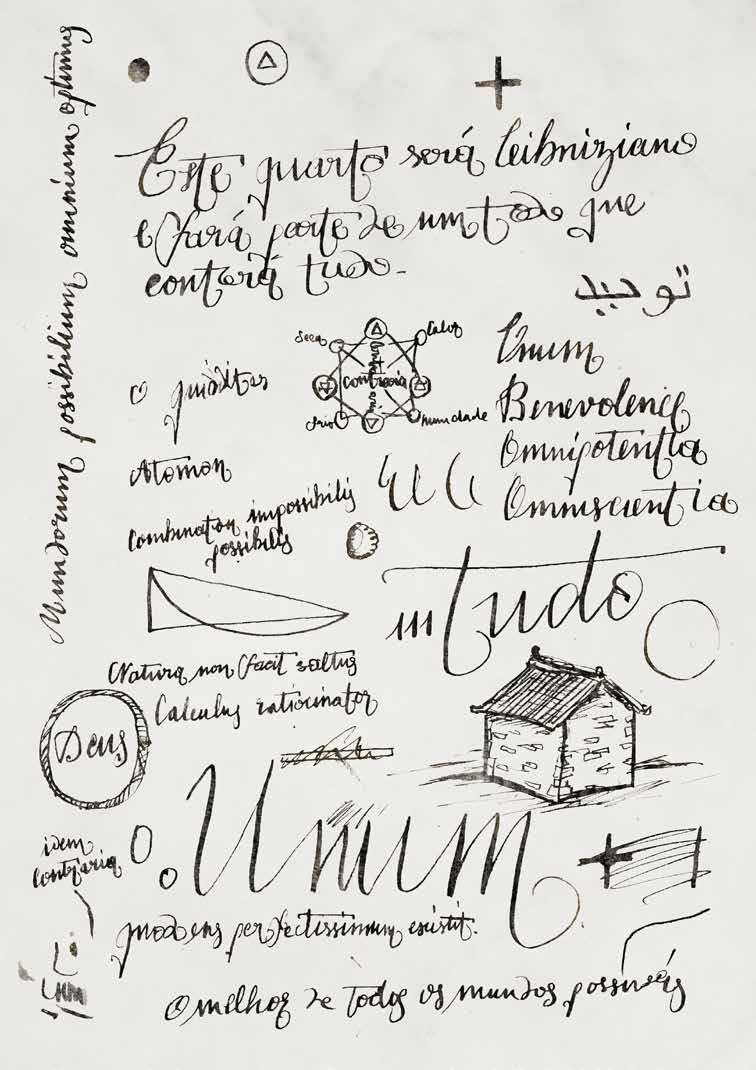 Mundorum possibilium omnium optimus
Este quarto será leibniziano
e fará parte de um todo que
conterá tudo.
توحيد
Seca
Calor
contraria
contraria
frio
humidade
Unum
Benevolence
Omnipotentia
Omniscientia
Atomon
Combinator impossibilis
possibilis
in tudo
Natura non facit saltus
Calculus ratiocinator
Deus
Unum
idem
contraria
quod ens perfectissimum existit.
O melhor de todos os mundos possíveis